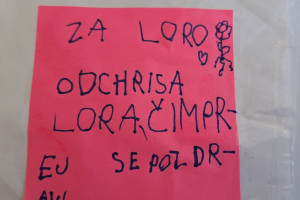 ZA LORO
ODCHRISA
LORA, ČIMPR-
EJ SE POZDR-